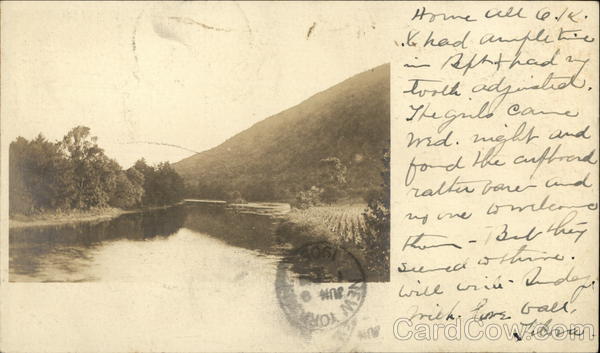 Home all O.K.
& had ample time
in Bpt & had my
tooth adjusted.
The girls came
Wed. night and
found the cupboard
rather bare and
no one to welcome
them - But they
seemed to thrive.
will write Sunday
With love to all,
NEW YORK
JUN
CardCow.com